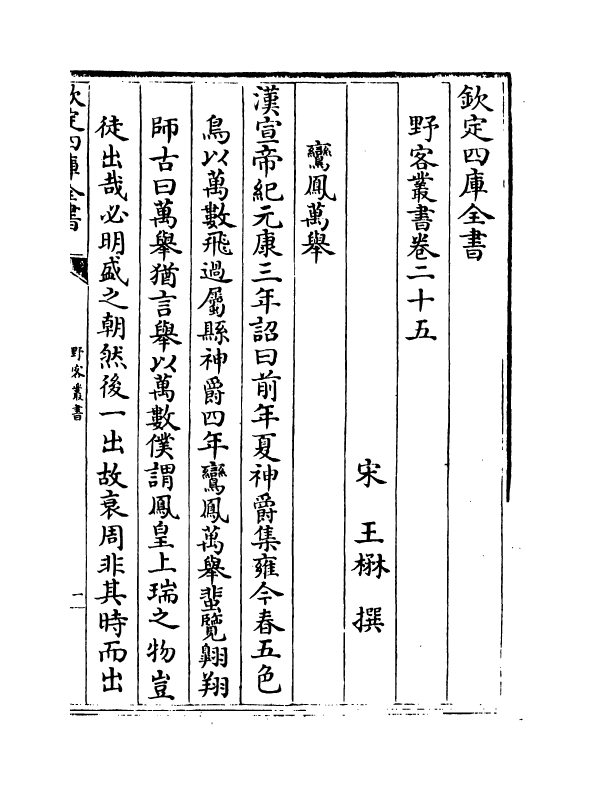 欽定四庫全書
野客叢書卷二十五
宋 王楙 撰
鸞鳳萬舉
漢宣帝紀元康三年詔曰前年夏神爵集雍今春五色
鳥以萬數飛過屬縣神爵四年鸞鳳萬舉蜚覽翺翔
師古曰萬舉猶言舉以萬數僕謂鳳皇上瑞之物豈
徒出哉必明盛之朝然後一出故衰周非其時而出
欽定四庫全書
野客叢書
一